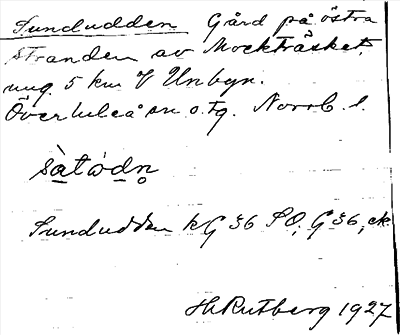 Sundudden Gård på östra
stranden av Mockträsket,
ung. 5 km V Unbyn.
Överluleå sn o. tg. Norrb. l.
Sundudden kG 36 SO, G 36, ek
HRutberg 1927